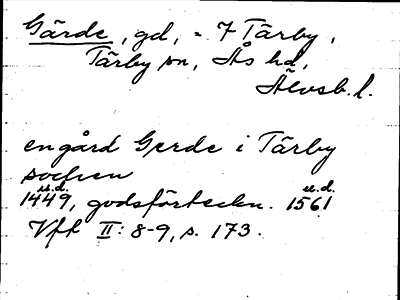 Gärde, gd, = 7 Tärby,
Tärby sn, Ås hd,
Älvsb. l.
en gård Gerde i Tärby
socken
u.d. u.d.
1449, godsförteckn. 1561
Vft II: 8-9, s. 173.